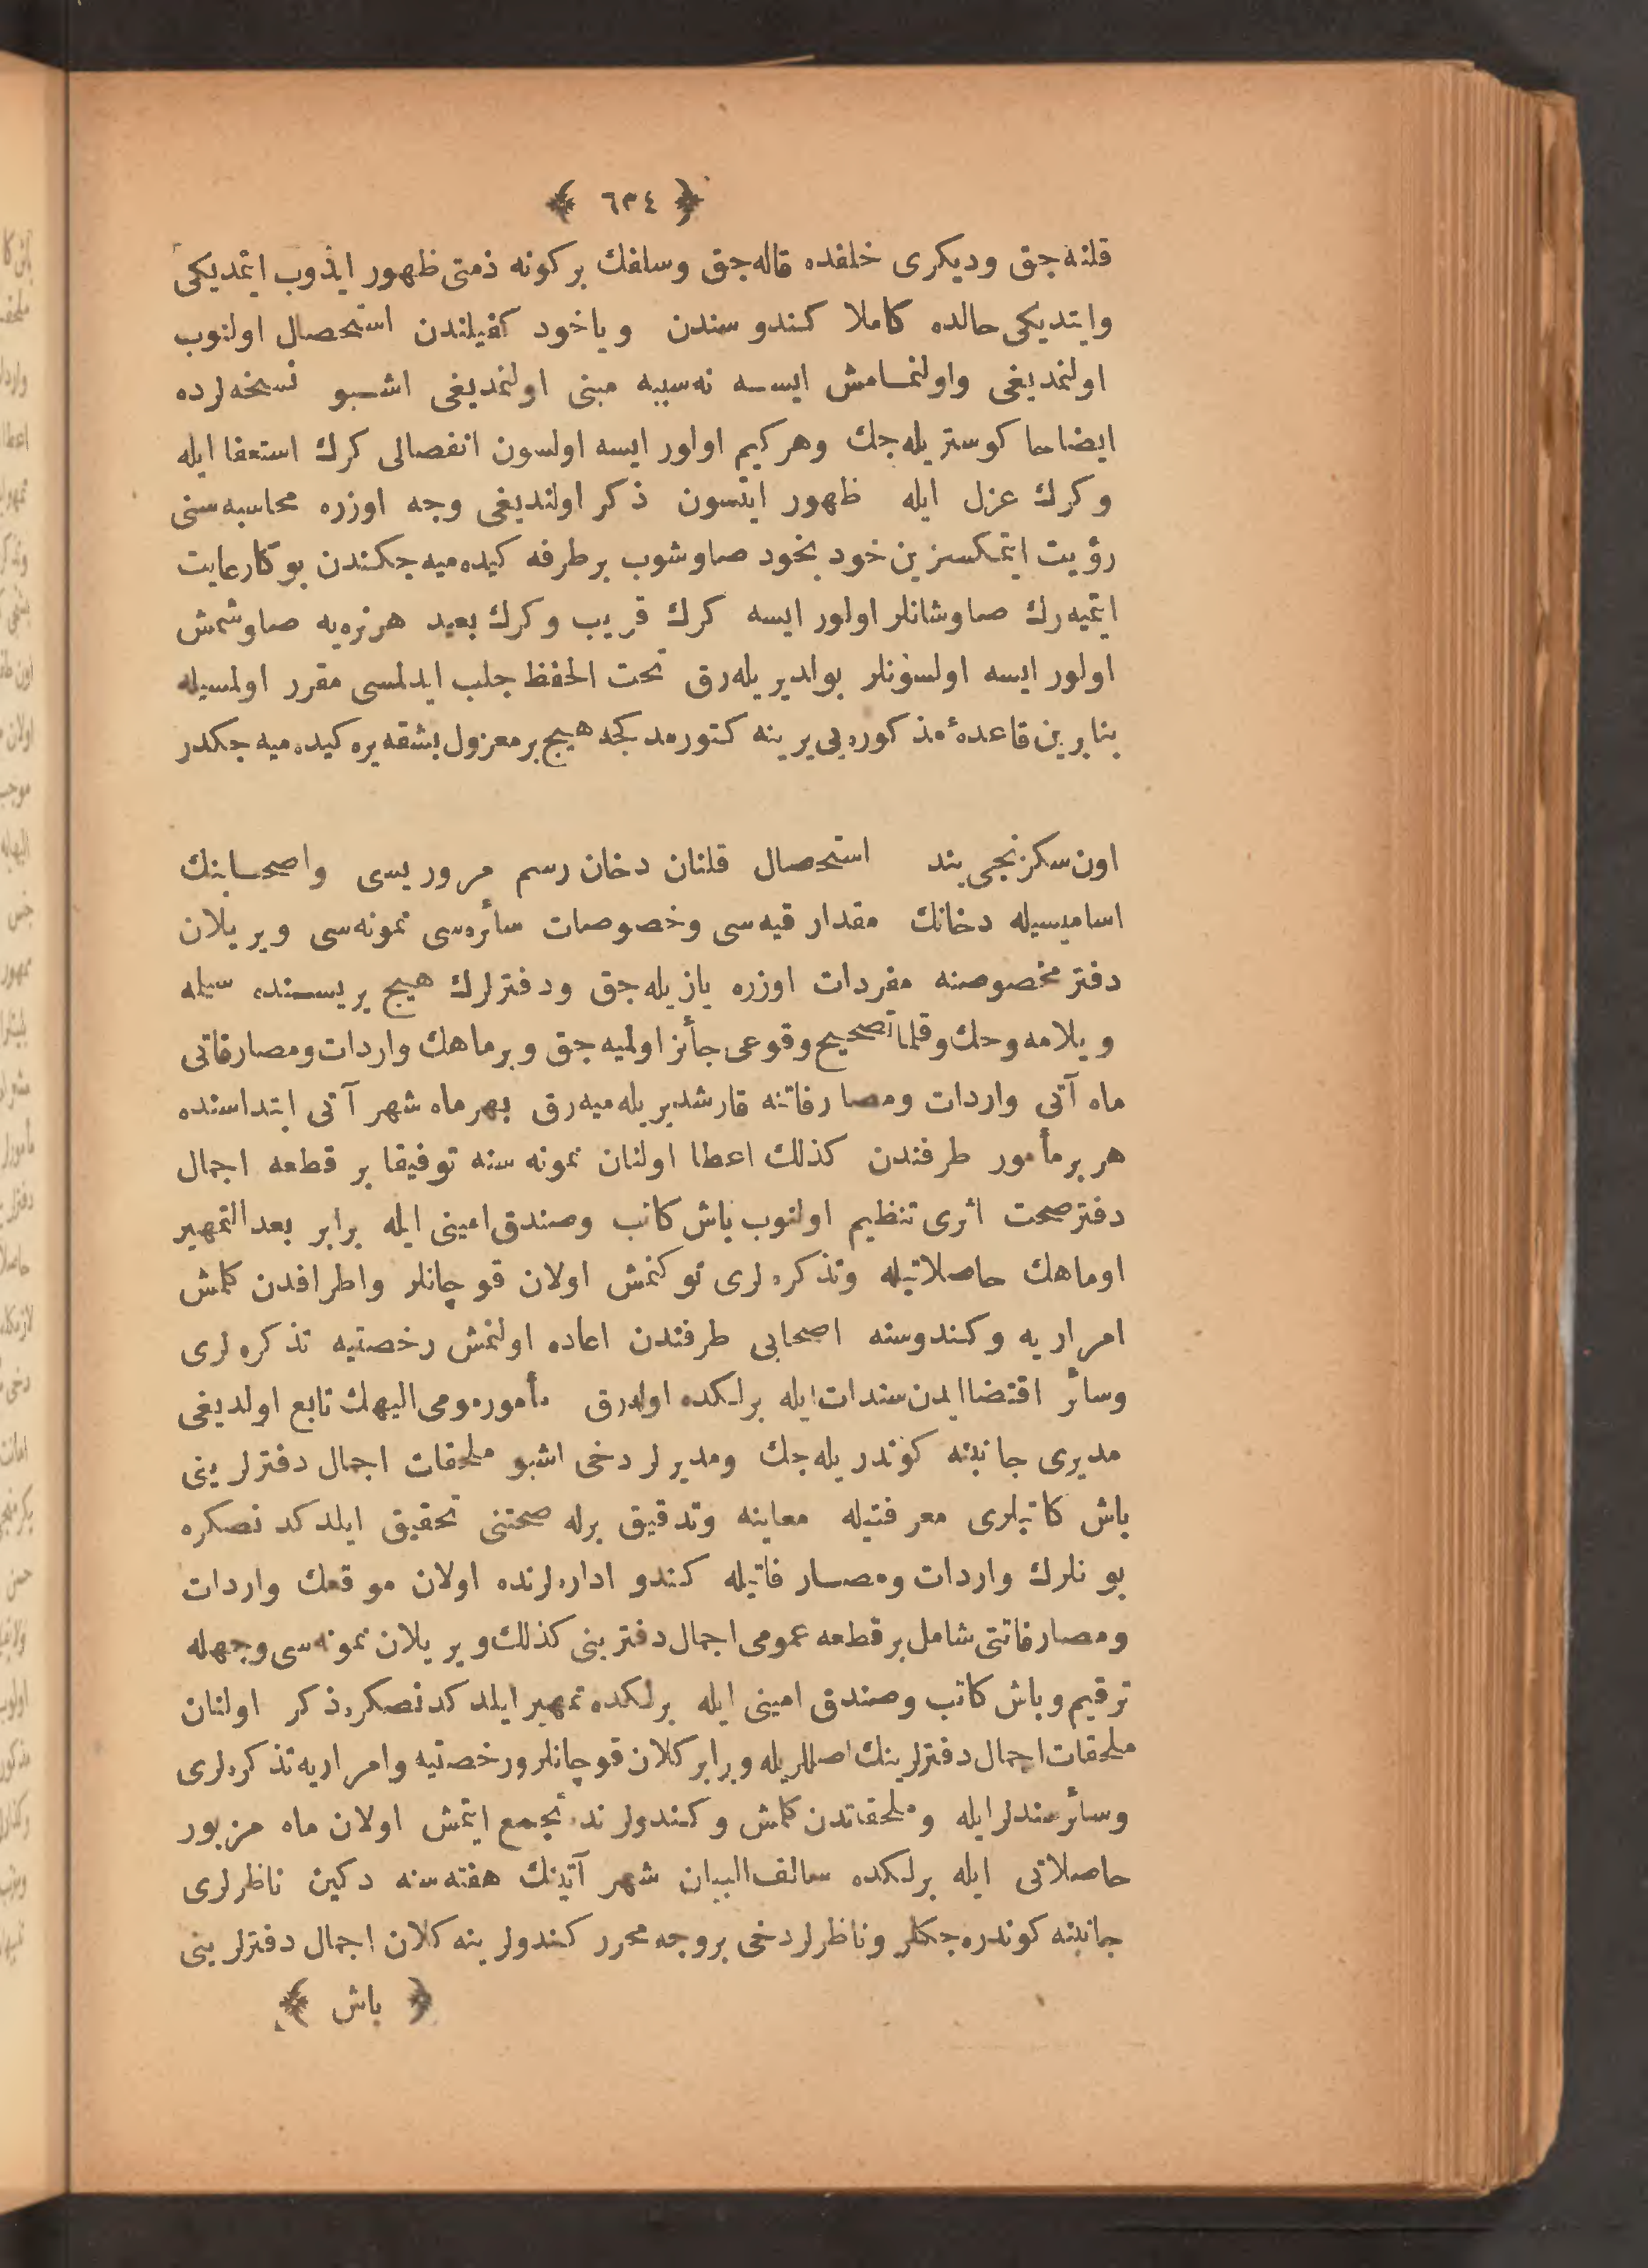 ﴿ ٦٣٤ ﴾
قلنه‌جق ودیکری خلفده قاله‌جق وسلفك برکونه ذمتی ظهور ایدوب ایتمدیکی
وایتدیکی حالده کاملا کندوسندن ویاخود کفیلندن استحصال اولنوب
اولنمدیغی واولنمامش ایسه نه‌سببه مبنی اولنمدیغی اشبو نسخه‌لرده
ایضاحا کوستریله‌جك وهرکیم اولور ایسه اولسون انفصالی کرك استعفا ایله
وکرك عزل ایله ظهور ایتسون ذکر اولندیغی وجه اوزره محاسبه‌سنی
رؤیت ایتمکسزین خود بخود صاوشوب برطرفه کیده‌میه‌جکندن بوکا رعایت
ایتمیه‌رك صاوشانلر اولور ایسه کرك قریب وکرك بعید هرنره‌یه صاوشمش
اولور ایسه اولسونلر بولدیریله‌رق تحت الحفظ جلب ایدلمسی مقرر اولمسیله
بنابرین قاعدهٔ مذکوره‌یی یرینه کتورمدکجه هیچ برمعزول بشقه یره کیده‌میه‌جکدر
اون‌سکزنجی بند استحصال قلنان دخان رسم مروریسی واصحابنك
اسامیسیله دخانك مقدار قیه‌سی وخصوصات سائره‌سی نمونه‌سی ویریلان
دفتر مخصوصنه مفردات اوزره یازیله‌جق ودفترلرك هیچ بریسنده سیله
ویلامه وحك وقلما تصحیح وقوعی جائز اولمیه‌جق وبرماهك واردات ومصارفاتی
ماه آتی واردات ومصارفاتنه قارشدیریله‌میه‌رق بهرماه شهر آتی ابتداسنده
هربرمأمور طرفندن کذلك اعطا اولنان نمونه‌سنه توفیقا بر قطعه اجمال
دفترصحت اثری تنظیم اولنوب باش کاتب وصندق امینی ایله برابر بعدالتمهیر
اوماهك حاصلاتیله وتذکره‌لری توکنمش اولان قوچانلر واطرافدن کلمش
امراریه وکندوسنه اصحابی طرفندن اعاده اولنمش رخصتیه تذکره‌لری
وسائر اقتضا ایدن سندات ایله برلکده اوله‌رق مأمور مومی الیهك تابع اولدیغی
مدیری جانبنه کوندریله‌جك ومدیرلر دخی اشبو ملحقات اجمال دفترلرینی
باش کاتبلری معرفتیله معاینه وتدقیق برله صحتنی تحقیق ایلدکدنصکره
بونلرك واردات ومصارفاتیله کندو اداره‌لرنده اولان موقعك واردات
ومصارفاتنی شامل برقطعه عمومی اجمال دفترینی کذلك ویریلان نمونه‌سی وجهله
ترقیم وباش کاتب وصندق امینی ایله برلکده تمهیر ایلدکدنصکره ذکر اولنان
ملحقات اجمال دفترلرینك اصللریله وبرابر کلان قوچانلر ورخصتیه وامراریه تذکره‌لری
وسائر سندلر ایله وملحقاتدن کلمش وکندولرنده تجمع ایتمش اولان ماه مزبور
حاصلاتی ایله برلکده سالف البیان شهر آتینك هفته‌سنه دکین ناظرلری
جانبنه کوندره‌جکلر وناظرلر دخی بروجه محرر کندولرینه کلان اجمال دفترلرینی
﴿ باش ﴾